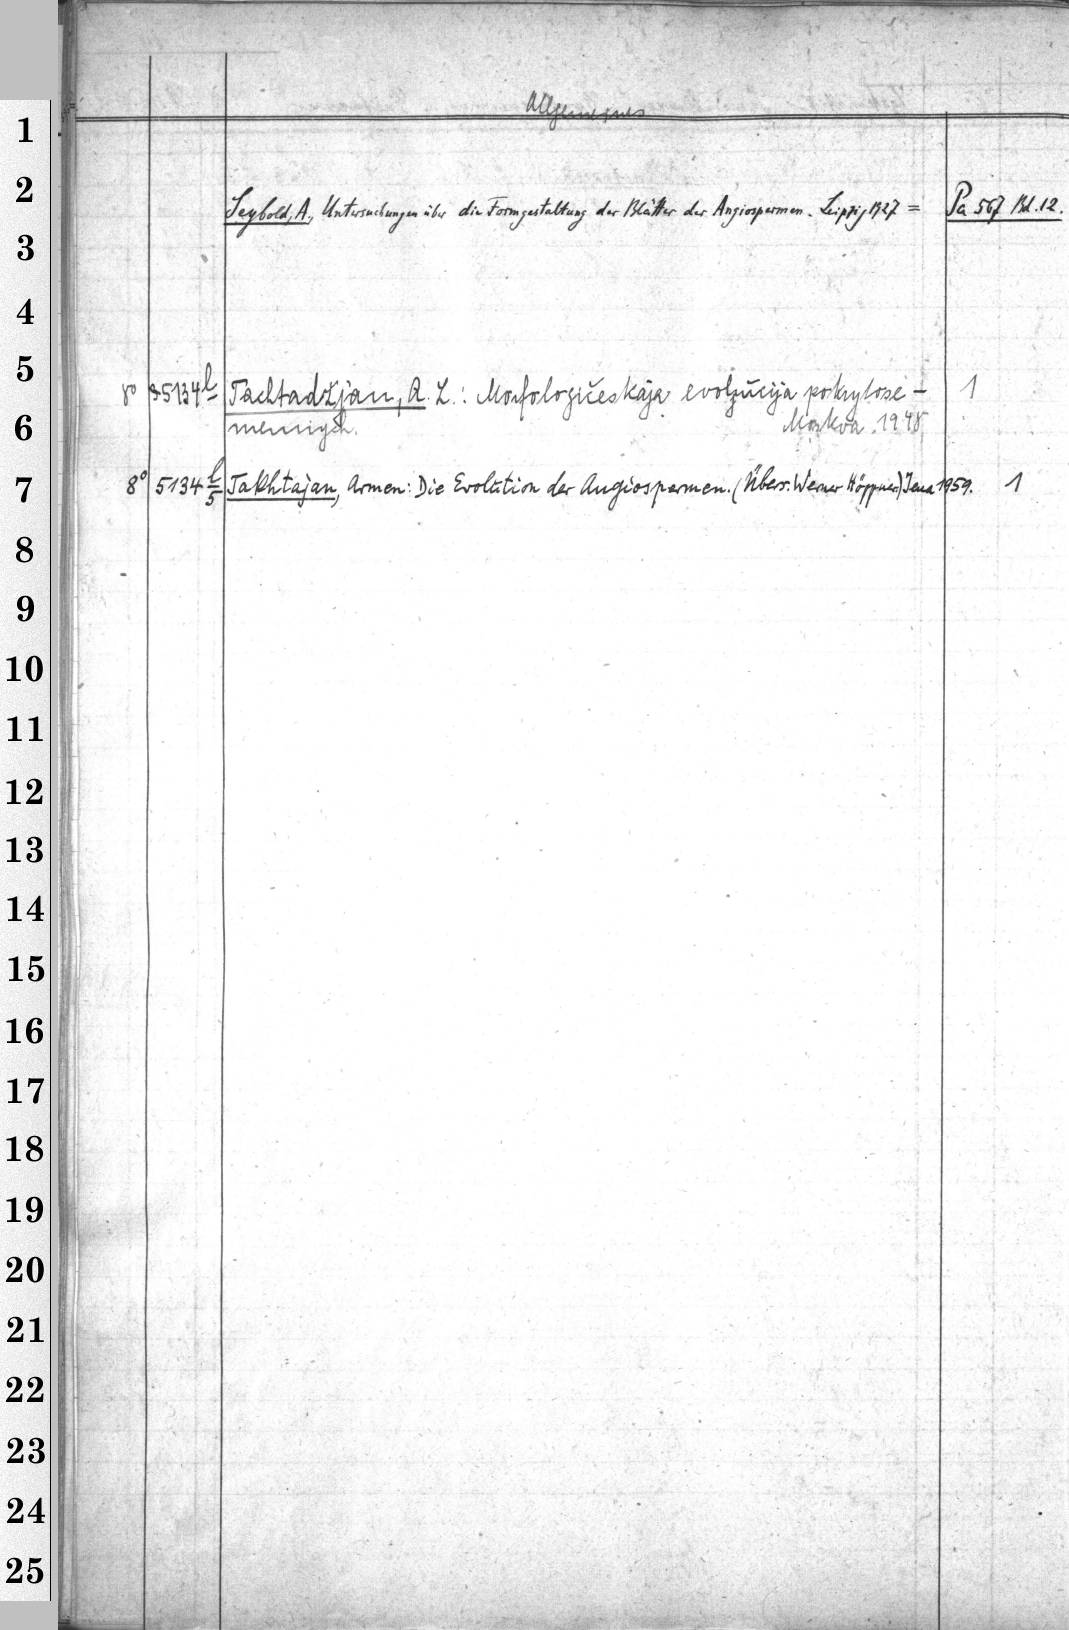 Allgemeines
1
2
Seybold, A., Untersuchungen über die Formgestaltung der Blätter der Angiospermen. Leipzig 1927 = Pa 567 Bd. 12.
3
4
5
8° 5134 l Tachtadžjan, A. L.: Morfologičeskaja evoljucija pokrytose- 1
6 mennych. Moskva 1948
7 8° 5134 l/5 Takhtajan, Armen: Die Evolution der Angiospermen. (Übers. Werner Höppner) Jena 1959. 1
8
9
10
11
12
13
14
15
16
17
18
19
20
21
22
23
24
25